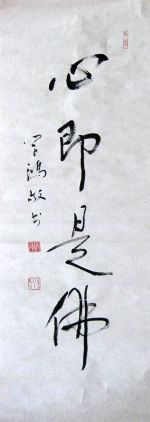 心即是佛
鴻敬书